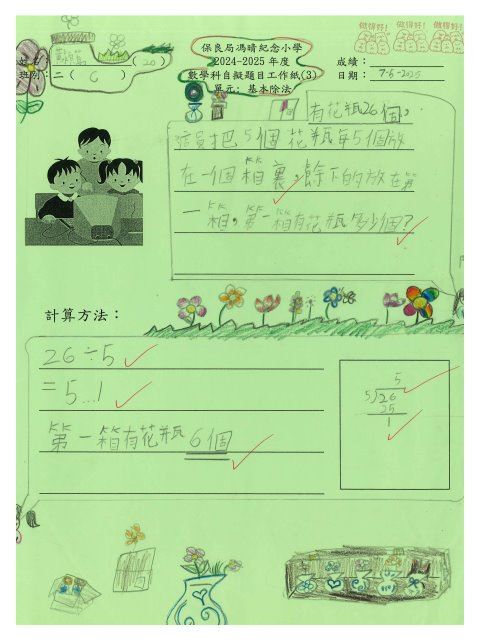 做得好! 做得好! 做得好!
保良局馮晴紀念小學
2024-2025 年度
數學科自擬題目工作紙(3)
單元: 基本除法
姓名: (20)
班別: 二 ( C )
成績:
日期: 7-6-2025
有花瓶26個。
店員把5個花瓶每5個放
在一個箱裏,餘下的放在第
一箱。第一箱有花瓶多少個?
計算方法:
26÷5
=5...1
第一箱有花瓶6個
5
5 26
25
1